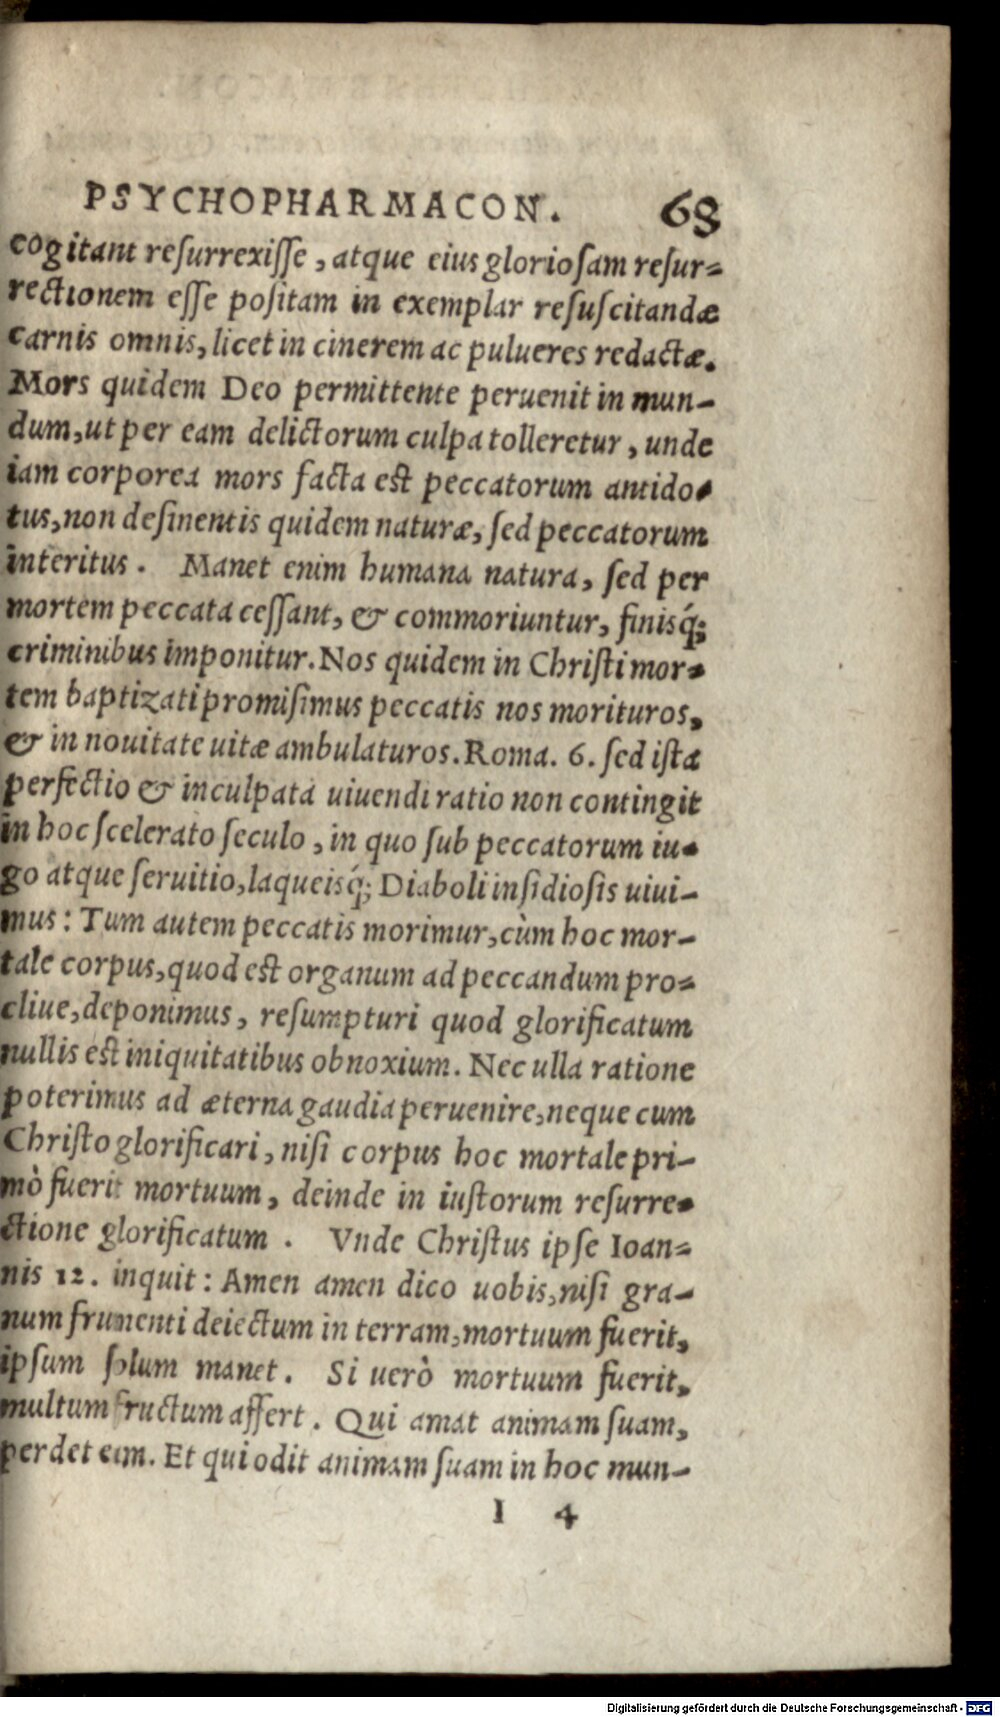 PSYCHOPHARMACON. 68
cogitant reſurrexiſſe, atque eius glorioſam reſur-
rectionem eſſe poſitam in exemplar reſuſcitandæ
carnis omnis, licet in cinerem ac pulueres redactæ.
Mors quidem Deo permittente peruenit in mun-
dum, ut per eam delictorum culpa tolleretur, unde
iam corporea mors facta est peccatorum antido-
tus, non deſinentis quidem naturæ, ſed peccatorum
interitus. Manet enim humana natura, ſed per
mortem peccata ceſſant, & commoriuntur, finisq́;
criminibus imponitur. Nos quidem in Chriſti mor-
tem baptizati promiſimus peccatis nos morituros,
& in nouitate uitæ ambulaturos. Roma. 6. ſed iſta
perfectio & inculpata uiuendi ratio non contingit
in hoc ſcelerato ſeculo, in quo ſub peccatorum iu-
go atque ſeruitio, laqueisq́; Diaboli inſidioſis uiui-
mus: Tum autem peccatis morimur, cùm hoc mor-
tale corpus, quod est organum ad peccandum pro-
cliue, deponimus, reſumpturi quod glorificatum
nullis est iniquitatibus obnoxium. Nec ulla ratione
poterimus ad æterna gaudia peruenire, neque cum
Chriſto glorificari, niſi corpus hoc mortale pri-
mò fuerit mortuum, deinde in iuſtorum reſurre-
ctione glorificatum. Vnde Chriſtus ipſe Ioan-
nis 12. inquit: Amen amen dico uobis, niſi gra-
num frumenti deiectum in terram, mortuum fuerit,
ipſum ſolum manet. Si uerò mortuum fuerit,
multum fructum affert. Qui amat animam ſuam,
perdet eam. Et qui odit animam ſuam in hoc mun-
I 4
Digitalisierung gefördert durch die Deutsche Forschungsgemeinschaft - DFG